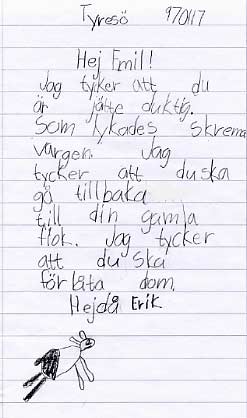 Tyresö 970117
Hej Emil!
Jag tyker att du
är jätte duktig.
Som lykades skrema
vargen. Jag
tycker att du ska
gå tillbaka
till din gamla
flok. Jag tycker
att du ska
förlåta dom.
Hejdå Erik